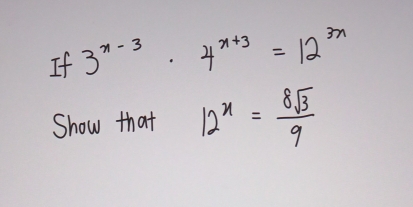 If 3^{x-3} . 4^{x+3} = 12^{3x}
Show that 12^{x} = \frac{8\sqrt{3}}{9}